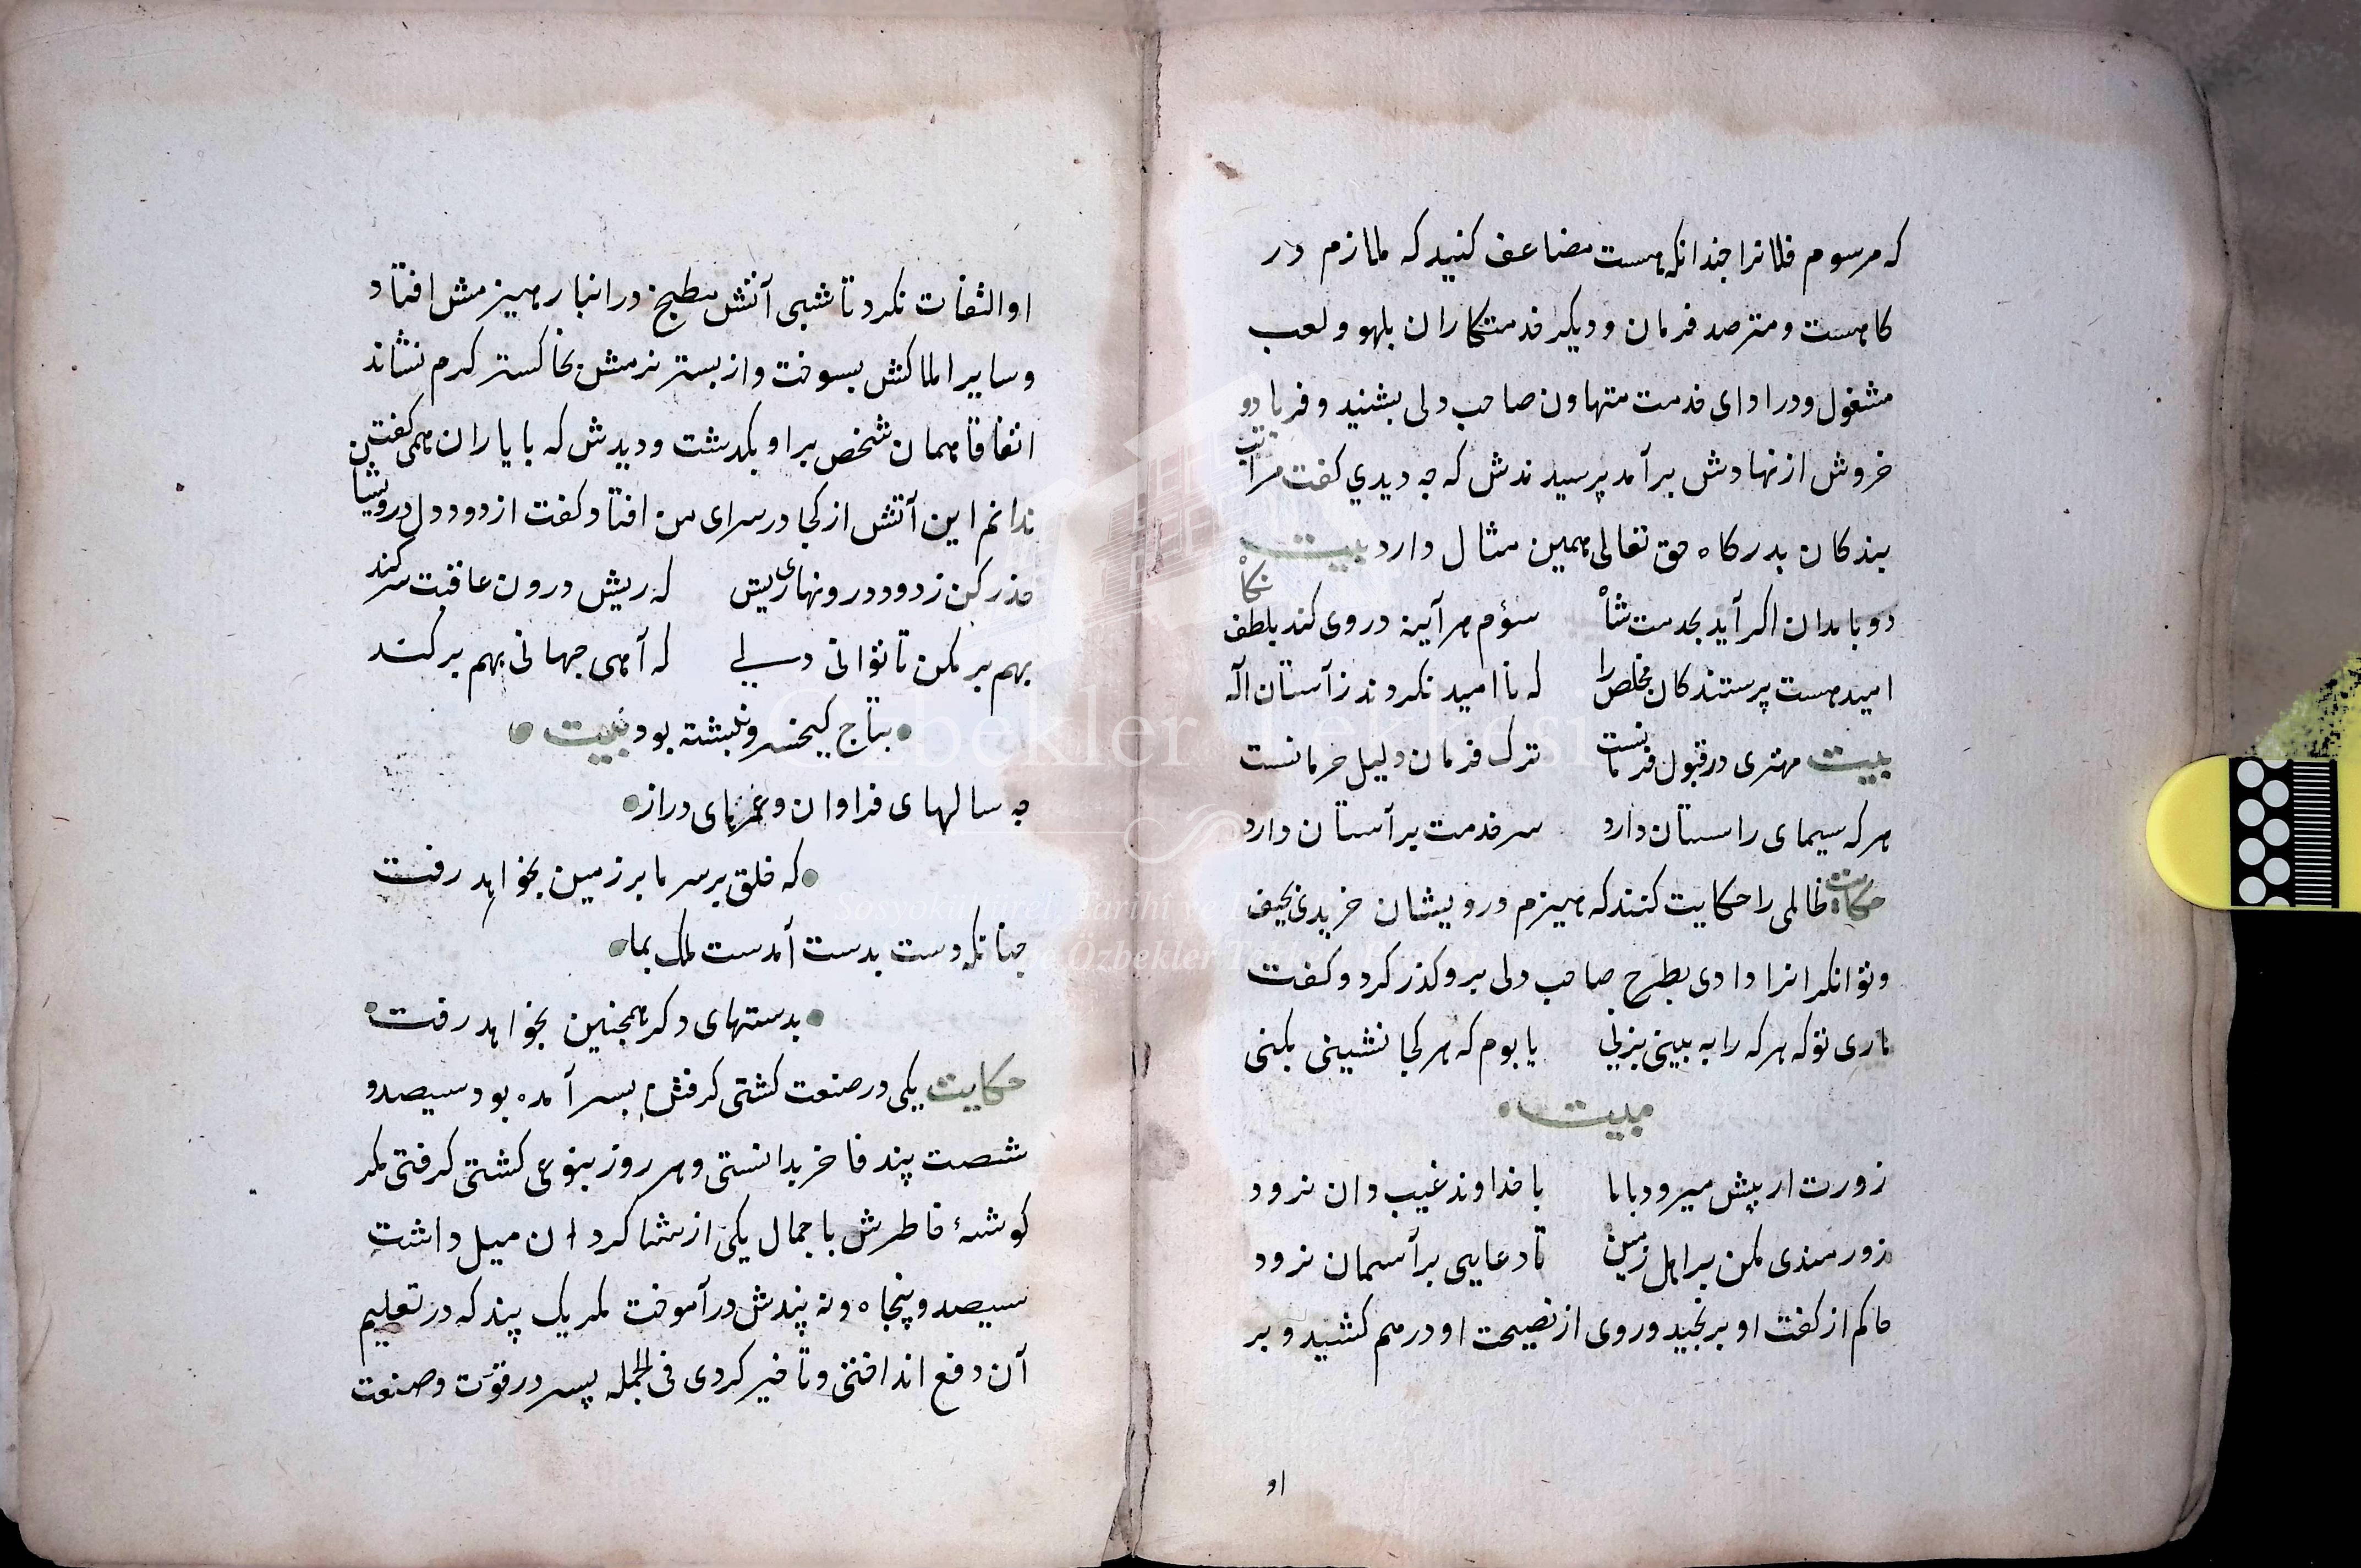 که مرسوم فلانرا چندانکه هست مضاعف کنید که ملازم در
کاهست و مترصد فرمان و دیکر خدمتکاران بلهو و لعب
مشغول و در ادای خدمت متهاون صاحب دلی بشنید و فریاد و
خروش از نهادش برآمد پرسیدندش که چه دیدي کفت مراتب
بندکان بدرکاه حق تعالی همین مثال دارد بیت
دو بامدان اکر آید بخدمت شاه سؤم هر آیینه در وی کند بلطف نکاه
امید هست پرستندکان مخلص را که نا امید نکردند ز آستان اله
بیت مهتری در قبول فرمانست ترک فرمان دلیل حرمانست
هر که سیمای راستان دارد سر خدمت بر آستان دارد
حکایت ظالمی را حکایت کنند که هیزم درویشان خریدی بحیف
و توانکرانرا دادی بطرح صاحب دلی برو کذر کرد و کفت
ماری تو که هر که را به بینی بزنی یا بوم که هر کجا نشینی بکنی
بیت
زورت ار پیش میرود با ما با خداوند غیب دان نرود
زورمندی مکن بر اهل زمین تا دعایی بر آسمان نرود
حاکم از کفت او برنجید و روی از نصیحت او درهم کشید و بر
او
او التفات نکرد تا شبی آتش مطبخ در انبار هیزمش افتاد
و سایر املاکش بسوخت و از بستر نرمش بخاکستر کرم نشاند
اتفاقا همان شخص بر او بکذشت و دیدش که با یاران همی کفت
ندانم این آتش از کجا در سرای من افتاد کفت از دود دل درویشان
حذر کن ز دود درونهای ریش که ریش درون عاقبت سر کند
بهم بر مکن تا توانی دلی که آهی جهانی بهم بر کند
بتاج کیخسرو نبشته بود بیت
چه سالهای فراوان و عمرهای دراز
که خلق بر سر ما بر زمین بخواهد رفت
چنانکه دست بدست آمدست ملک بما
بدستهای دکر همچنین بخواهد رفت
حکایت یکی در صنعت کشتی کرفتن بسر آمده بود سیصد و
شصت پند فاخر بدانستی و هر روز بنوعی کشتی کرفتی مکر
کوشهٔ خاطرش با جمال یکی از شاکردان میل داشت
سیصد و پنجاه و نه پندش درآموخت مکر یک پند که در تعلیم
آن دفع انداختی و تاخیر کردی فی الجمله پسر در قوّت و صنعت